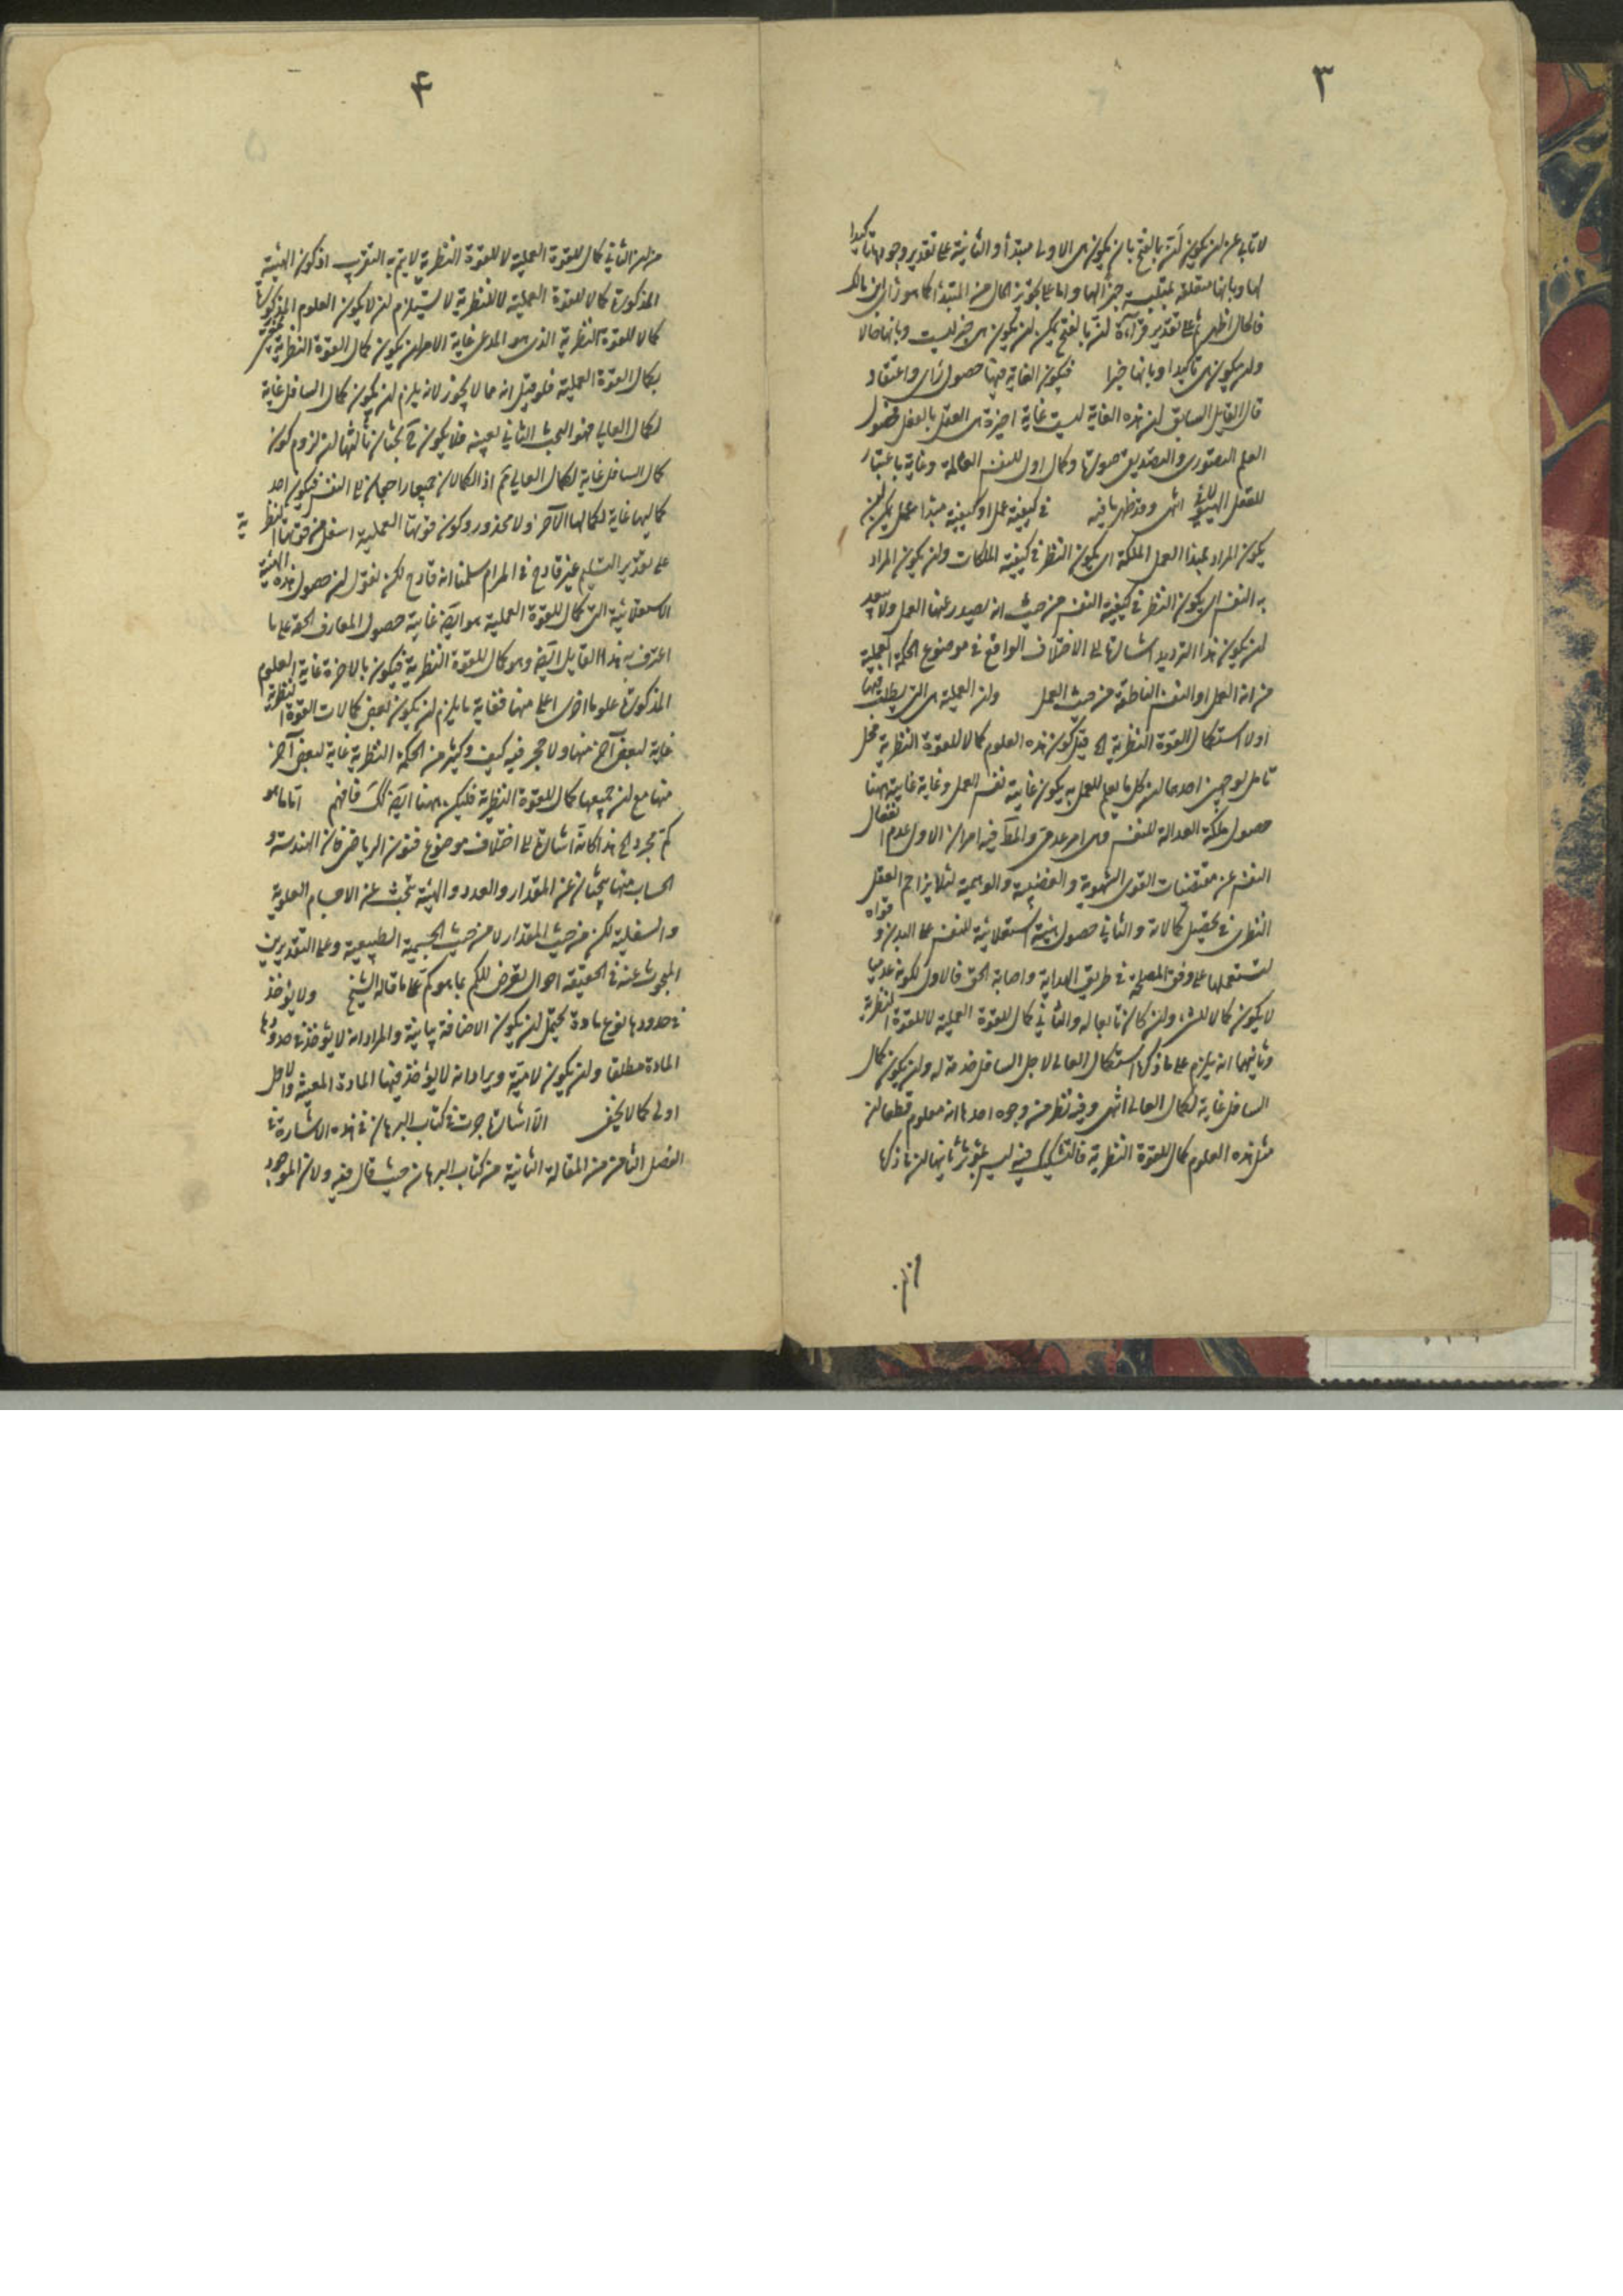 ٣
لا تأبى عن ان يكون ان بالفتح بان يكون هى الاولى مبتدأ والثانية على تقدير وجودها تاكيدا
لها وبانها متعلقة بمتلبسة خبرا لها واما على تجويز الحال من المبتدأ كما هو رأى ابن مالك
فالحال اظهر ثم على تقدير قراءة ان بالفتح يمكن ان يكون هى خبر ليست وبانها حالا
وان يكون هى تاكيدا وبانها خبرا فيكون الغاية فيها حصول رأى واعتقاد
قال القايل السابق ان هذه الغاية ليست غاية اخيرة هى العقل بالفعل فحصول
العلم التصورى والتصديقى صورة وكمال اول للنفس العالمة وغاية باعتبار
للعقل الهيولانى انتهى وقد ظهر ما فيه فى كيفية عمل او كيفية مبتدأ عمل يمكن ان
يكون المراد بمبدأ العمل الملكة اى يكون النظر فى كيفية الملكات وان يكون المراد
به النفس اى يكون النظر فى كيفية النفس من حيث انه يصدر عنها العمل ولا يبعد
ان يكون هذا الترديد اشارة الى الاختلاف الواقع فى موضوع الحكمة العملية
من انه العمل او النفس الناطقة من حيث العمل وان العملية هى التى يطلب فيها
اولا استكمال القوة النظرية الخ قيل كون هذه العلوم كمالا للقوة النظرية محل
تامل لوجهين احدهما ان كل ما يعلم للعمل به يكون غايته نفس العمل وغاية غايته ههنا
حصول ملكة العدالة للنفس وهى امر عدمى والمآ فيه امران الاول عدم انفعال
النفس عن مقتضيات القوى الشهوية والغضبية والوهمية لئلا يزاحم العقل
النظرى فى تحصيل كمالاته والثانى حصول هيئة استعلائية للنفس على البدن وقواه
لتستعملها على وفق المصلحة فى طريق الهداية واصابة الحق فالاول لكونه عدميا
لا يكون كمالا للشئ وان كان تابعا له والثانى كمال للقوة العملية لا للقوة النظرية
وثانيهما انه يلزم على ما ذكره استكمال العالى لاجل السافل خدمة له وان يكون كمال
السافل غاية لكمال العالى انتهى وفيه نظر من وجوه احدها انه معلوم قطعا ان
مثل هذه العلوم كمال للقوة النظرية فالتشكيك فيه ليس بمؤثر ثانيها ان ما ذكره
٤
من ان الثانى كمال للقوة العملية لا للقوة النظرية لا يتم به التقريب اذ كون الهيئة
المذكورة كمالا للقوة العملية لا للنظرية لا يستلزم ان لا يكون العلوم المذكورة
كمالا للقوة النظرية الذى هو المدعى غاية الامر ان يكون كمال القوة النظرية
بكمال القوة العملية فلو قيل انه مما لا يجوز لانه يلزم ان يكون كمال السافل غاية
لكمال العالى فهو البحث الثانى بعينه فلا يكون ح بحثان ثالثها ان لزوم كون
كمال السافل غاية لكمال العالى ثم اذ الكمالان جميعا راجعان الى النفس فيكون احد
كماليها غاية لكمالها الآخر ولا محذور وكون قوتها العملية اسفل من قوتها النظرية
على تقدير التسليم غير قادح فى المرام سلمنا انه قادح لكن نقول ان حصول هذه الهيئة
الاستعلائية التى كمال للقوة العملية هو ايضا غايته حصول المعارف الحقة على ما
اعترف به هذا القايل ايضا وهو كمال للقوة النظرية فيكون بالاخرة غاية العلوم
المذكورة علوما اخرى اعلى منها فغاية ما يلزم ان يكون بعض كمالات القوة النظرية
غاية لبعض آخر منها ولا حجر فيه كيف وكثير من الحكمة النظرية غاية لبعض آخر
منها مع ان جميعها كمال للقوة النظرية فليكن ههنا ايضا كك فافهم اما ما هو
كم مجرد الخ هذا كانه اشارة الى اختلاف موضوع فنون الرياضى فان الهندسة و
الحساب منها يبحثان عن المقدار والعدد والهيئة تبحث عن الاجسام العلوية
والسفلية لكن من حيث المقدار لا من حيث الجسمية الطبيعية وعلى التقديرين
المبحوث عنه فى الحقيقة احوال تعرض للكم بما هو كم على ما قاله الشيخ ولا يؤخذ
فى حدودها نوع مادة يحتمل ان يكون الاضافة بيانية والمراد انه لا يؤخذ فى حدودها
المادة مطلقا وان يكون لامية ويراد انه لا يؤخذ فيها المادة المعينة والاول
اولى كما لا يخفى الا اشارة جرت فى كتاب البرهان هذه الاشارة فى
الفصل الثامن من المقالة الثانية من كتاب البرهان حيث قال فيه ولان الموجود